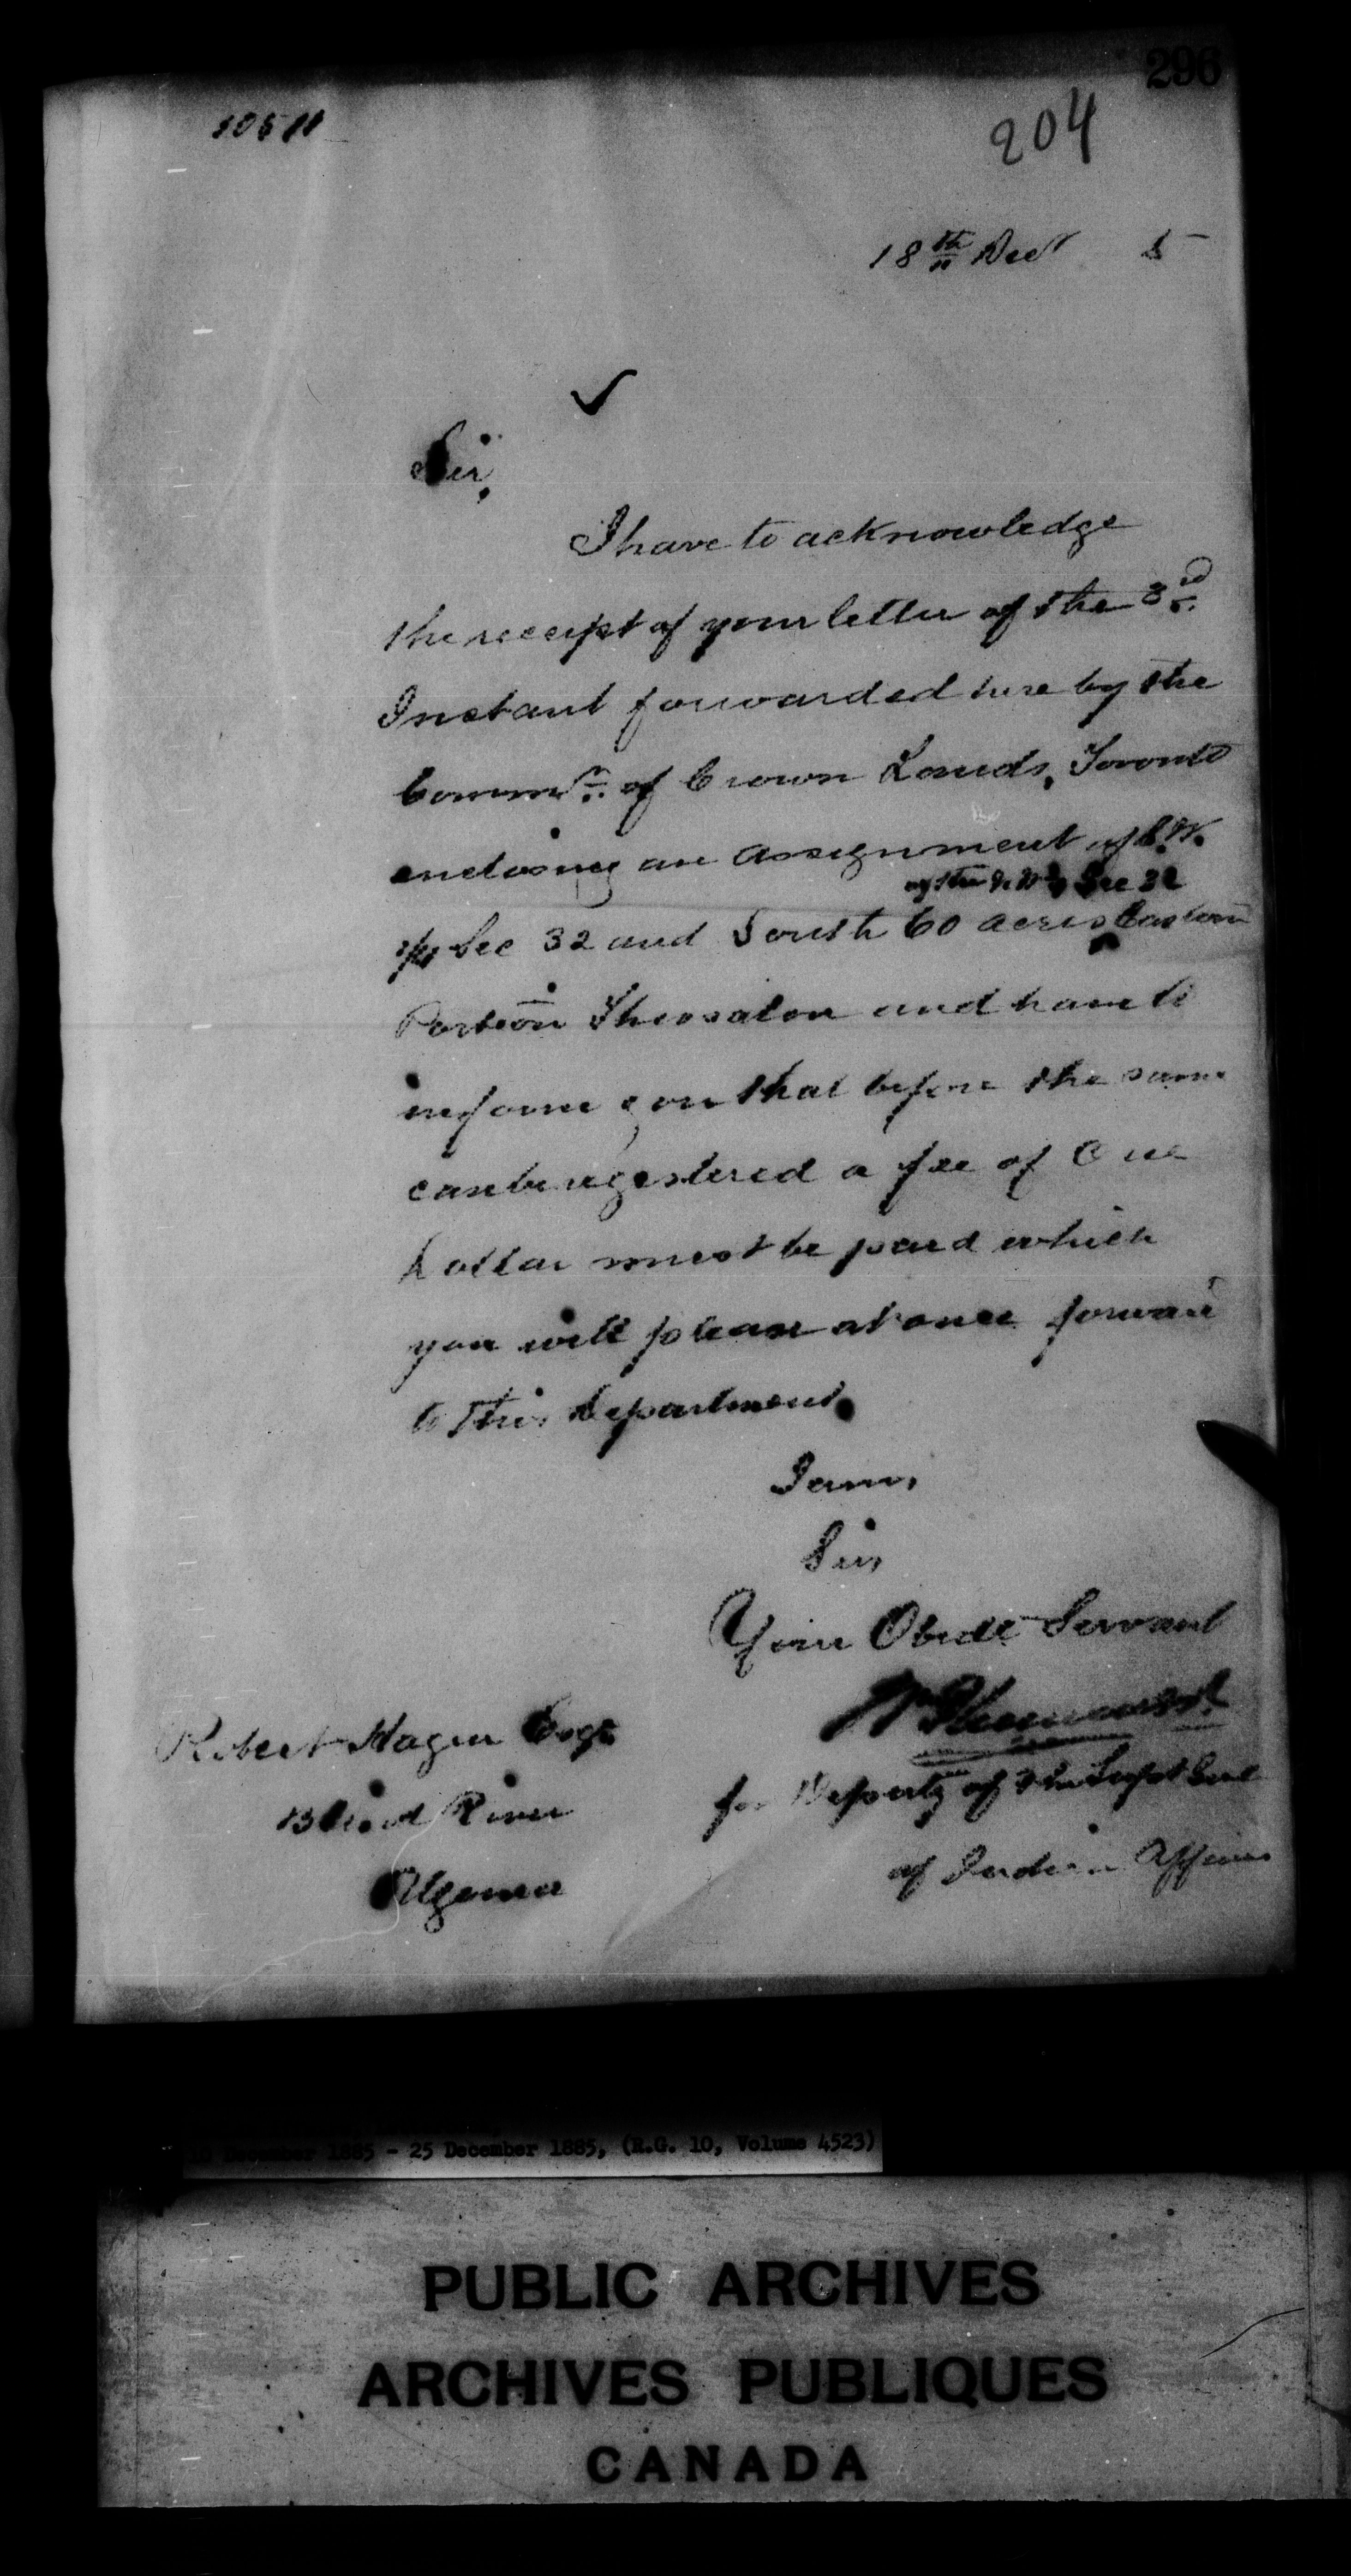 296
204
10511
18th Decr 5
Sir,
I have to acknowledge
the receipt of your letter of the 3rd
Instant forwarded here by the
Commr. of Crown Lands, Toronto
enclosing an assignment of S.W.
of the S.W 1/4 Sec 32
1/4 Sec 32 and South 60 acres Eastern
Portion Thessalon and have to
inform you that before the same
can be registered a fee of One
Dollar must be paid which
you will please at once forward
to this Department.
I am,
Sir,
Your Obedt Servant
for Deputy of the Supt Genl
of Indian Affairs
Robert Hagen Esqr
Blind River
Algoma
December 1885 - 25 December 1885, (R.G. 10, Volume 4523)
PUBLIC ARCHIVES
ARCHIVES PUBLIQUES
CANADA